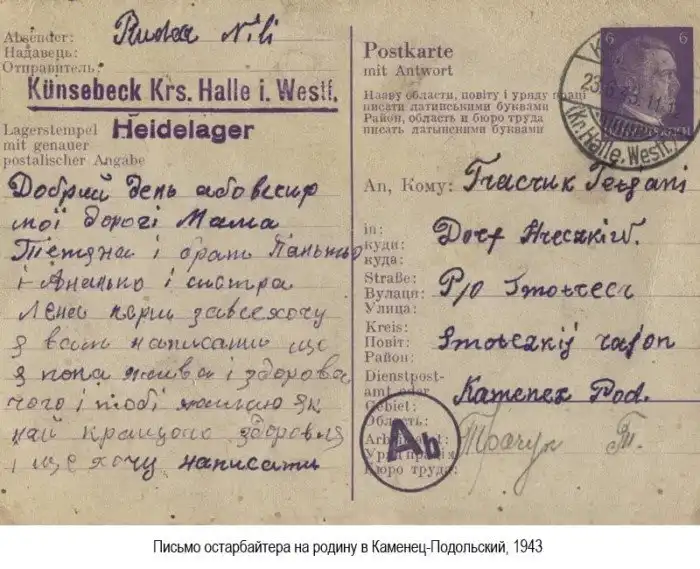 Absender:
Надавець:
Отправитель:
Künsebeck Krs. Halle i. Westf.
Lagerstempel
mit genauer
postalischer Angabe
Heidelager
Добрий день або вечир
мої дорогі Мама
Тетяна і брат Панько
і Ананько і систра
Лена перш завсе хочу
я вам написати що
я пока жива і здорова
чого і тобі жилаю як
най кращого здоровля
і ще хочу написати
Postkarte
mit Antwort
Назву области, повіту і уряду праці
писати латинськими буквами
Район, область и бюро труда
писать латынскими буквами
6 6
(Kr. Halle, Westf.)
An, Кому:
in:
куди:
куда:
Dorf
Straße:
Вулиця:
Улица:
P/o Smotrecz
Kreis:
Повіт:
Район:
rajon
Dienstpost-
amt oder
Gebiet:
Область:
Kamenez Pod.
Бюро труда:
Ab
Т.
Письмо остарбайтера на родину в Каменец-Подольский, 1943